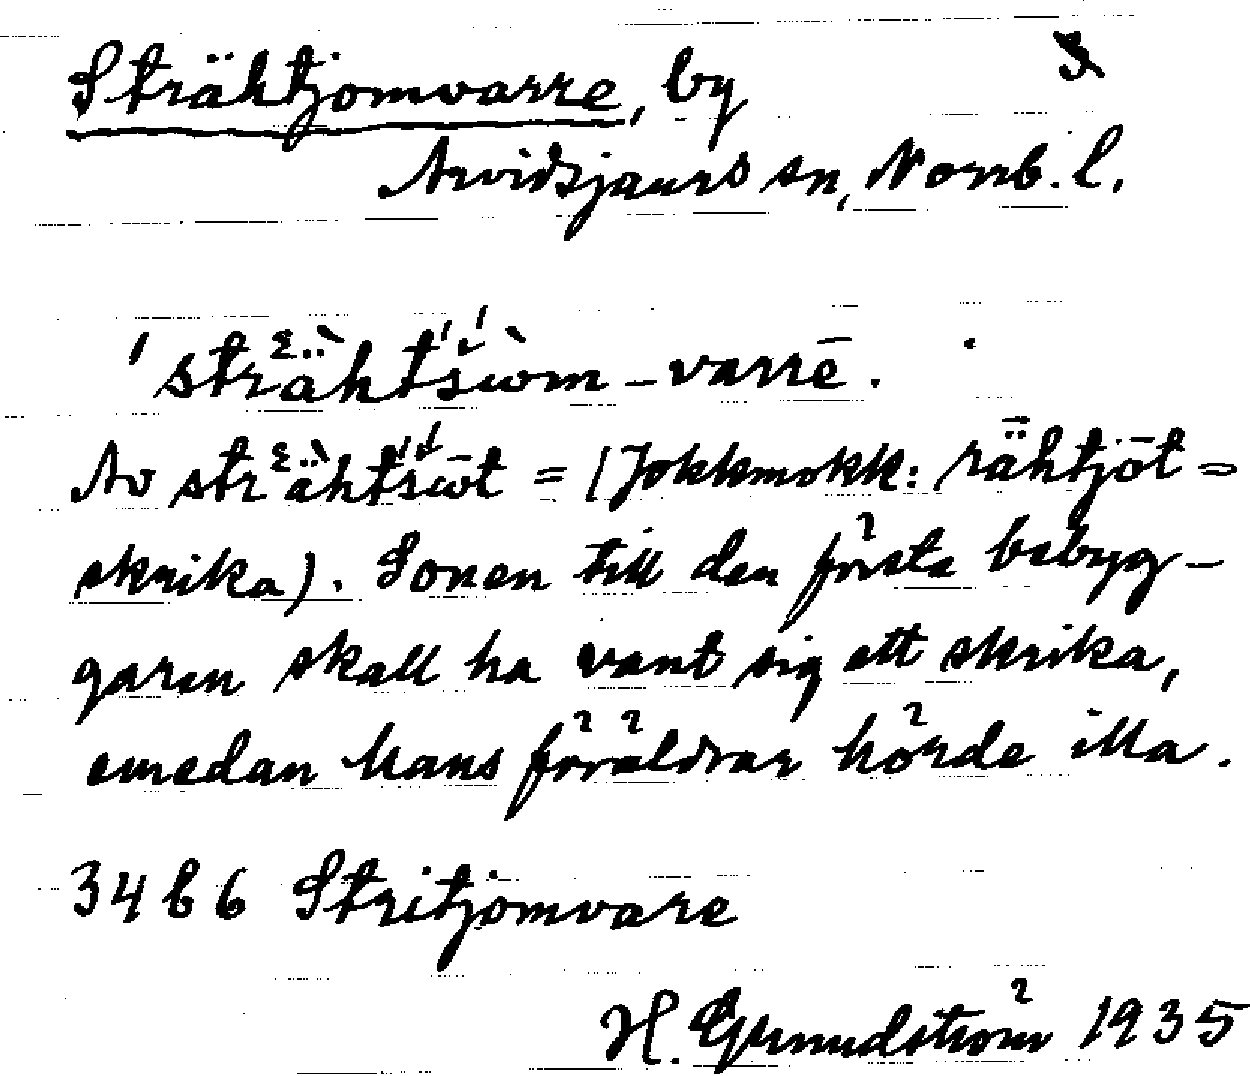 Strähtjomvarre, by
Arvidsjaurs sn, Norrb. l.
strähtsi̯om-varrē.
Av strähtsi̯ōt = (Jokkmokk: rǟhtjōt =
skrika). Sonen till den första bebyg-
garen skall ha vant sig att skrika,
emedan hans föräldrar hörde illa.
34 b 6 Stritjomvare
H. Grundström 1935